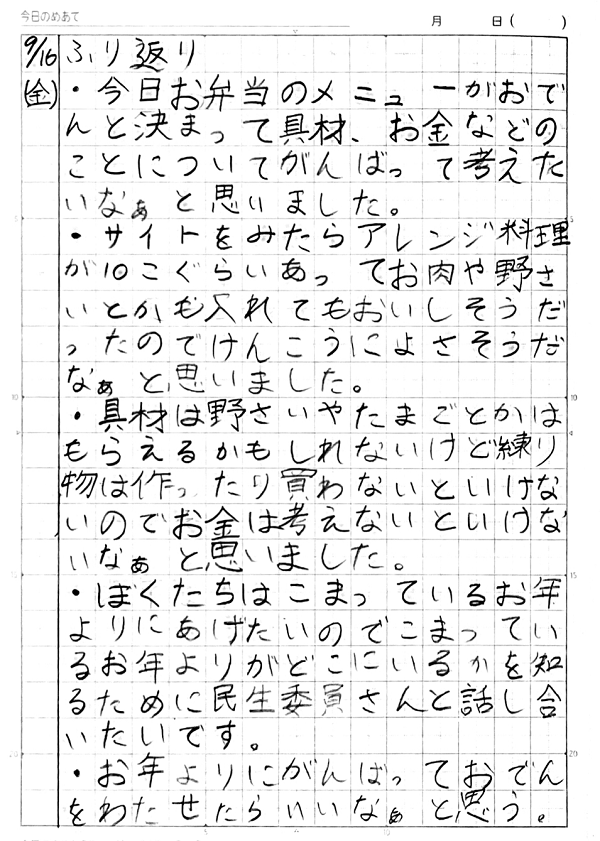 今日のめあて
月 日( )
9/16 ふり返り
(金) ・今日お弁当のメニューがおで
んと決まって具材、お金などの
ことについてがんばって考えた
いなぁと思いました。
・サイトをみたらアレンジ料理
が10こぐらいあってお肉や野さ
いとかも入れてもおいしそうだ
ったのでけんこうによさそうだ
なぁと思いました。
・具材は野さいやたまごとかは
もらえるかもしれないけど練り
物は作ったり買わないといけな
いのでお金は考えないといけな
いなぁと思いました。
・ぼくたちはこまっているお年
よりにあげたいのでこまってい
るお年よりがどこにいるかを知
るために民生委員さんと話し合
いたいです。
・お年よりにがんばっておでん
をわたせたらいいなぁと思う。
5
10
15
20